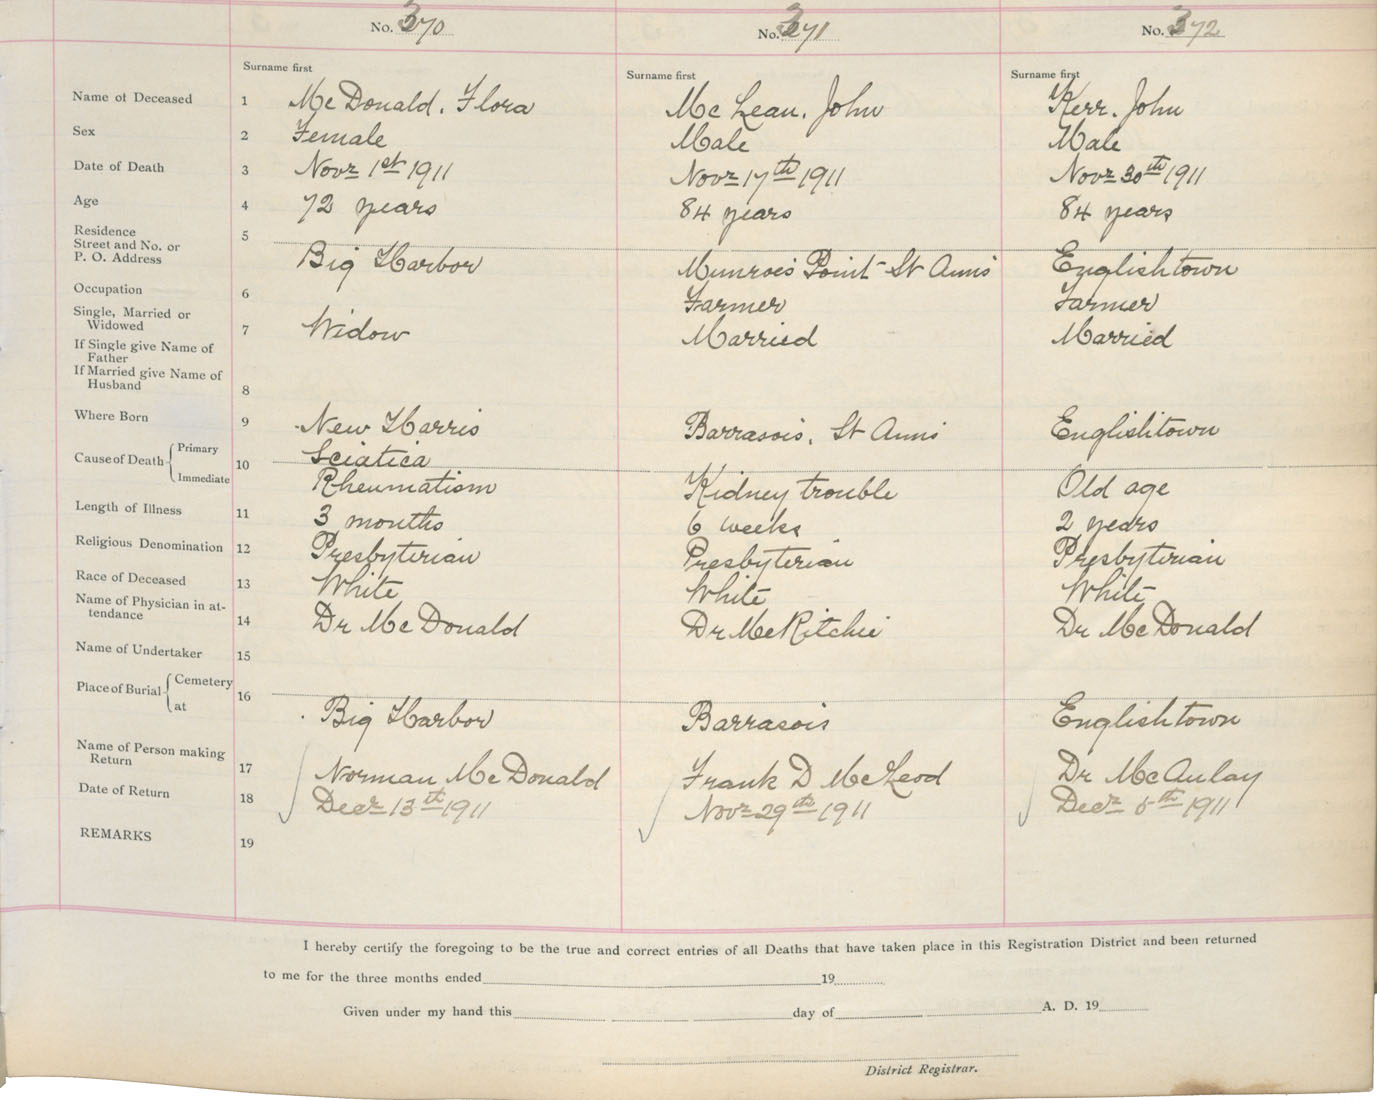 No. 370 No. 371 No. 372
Surname first Surname first Surname first
Name of Deceased 1 McDonald, Flora McLean, John Kerr, John
Sex 2 Female Male Male
Date of Death 3 Novr 1st 1911 Novr 17th 1911 Novr 30th 1911
Age 4 72 years 84 years 84 years
Residence
Street and No. or 5
P. O. Address Big Harbor Munroe's Point St Anns Englishtown
Occupation 6 Farmer Farmer
Single, Married or
Widowed 7 Widow Married Married
If Single give Name of
Father
If Married give Name of
Husband 8
Where Born 9 New Harris Barrasois, St Anns Englishtown
Cause of Death Primary Sciatica
10
Immediate Rheumatism Kidney trouble Old age
Length of Illness 11 3 months 6 weeks 2 years
Religious Denomination 12 Presbyterian Presbyterian Presbyterian
Race of Deceased 13 White White White
Name of Physician in at-
tendance 14 Dr McDonald Dr McRitchie Dr McDonald
Name of Undertaker 15
Place of Burial Cemetery
16
at Big Harbor Barrasois Englishtown
Name of Person making
Return 17 Norman McDonald Frank D McLeod Dr McAulay
Date of Return 18 Decr 13th 1911 Novr 29th 1911 Decr 5th 1911
REMARKS 19
I hereby certify the foregoing to be the true and correct entries of all Deaths that have taken place in this Registration District and been returned
to me for the three months ended 19
Given under my hand this day of A. D. 19
District Registrar.